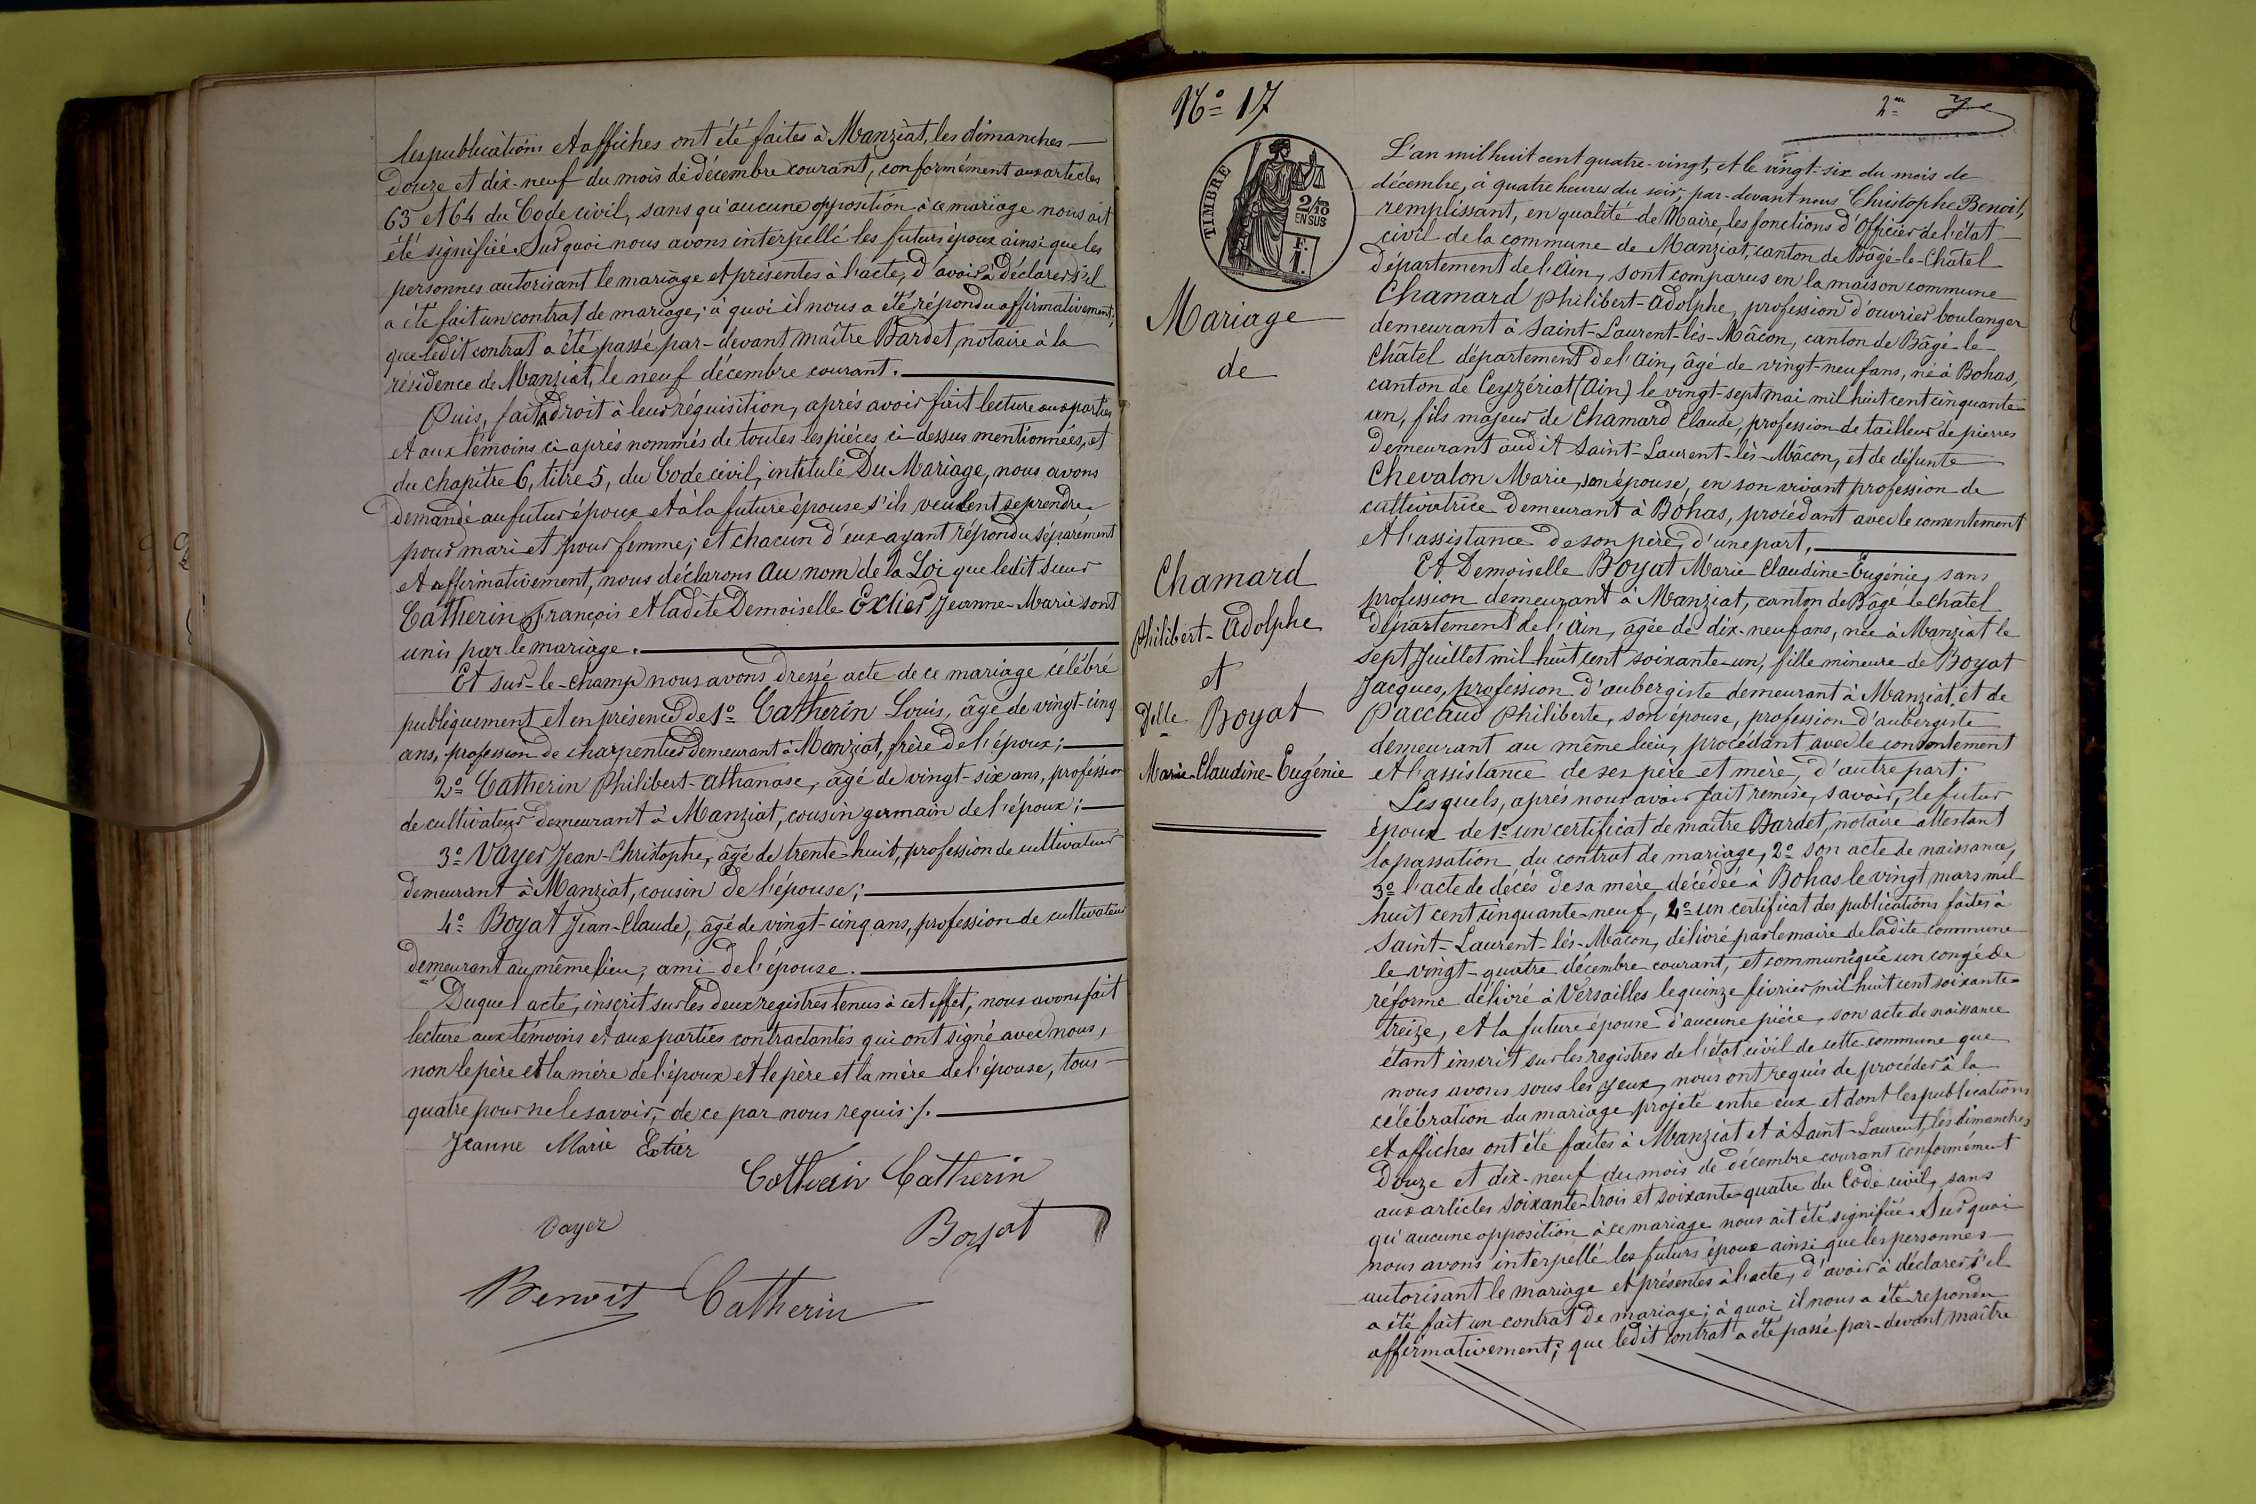 les publications et affiches ont été faites à Manziat, les dimanches
douze et dix-neuf du mois de décembre courant, conformément aux articles
63 et 64 du Code civil, sans qu'aucune opposition à ce mariage nous ait
été signifiée. Sur quoi nous avons interpellé les futurs époux ainsi que les
personnes autorisant le mariage et présentes à l'acte, d'avoir à déclarer s'il
a été fait un contrat de mariage; à quoi il nous a été répondu affirmativement;
que ledit contrat a été passé par-devant maître Bardet, notaire à la
résidence de Manziat, le neuf décembre courant.
Puis, fait droit à leur réquisition, après avoir fait lecture aux parties
et aux témoins ci-après nommés de toutes les pièces ci-dessus mentionnées, et
du chapitre 6, titre 5, du Code civil, intitulé Du Mariage, nous avons
demandé au futur époux et à la future épouse s'ils veulent se prendre
pour mari et pour femme; et chacun d'eux ayant répondu séparément
et affirmativement, nous déclarons au nom de la Loi que ledit sieur
Catherin François et ladite Demoiselle Extier Jeanne-Marie sont
unis par le mariage.
Et sur-le-champ nous avons dressé acte de ce mariage célébré
publiquement et en présence de 1o Catherin Louis, âgé de vingt-cinq
ans, profession de charpentier demeurant à Manziat, frère de l'époux;
2o Catherin Philibert-Athanase, âgé de vingt-six ans, profession
de cultivateur demeurant à Manziat, cousin germain de l'époux;
3o Vayer Jean-Christophe, âgé de trente-huit, profession de cultivateur
demeurant à Manziat, cousin de l'épouse;
4o Boyat Jean-Claude, âgé de vingt-cinq ans, profession de cultivateur
demeurant au même lieu, ami de l'épouse.
Duquel acte, inscrit sur les deux registres tenus à cet effet, nous avons fait
lecture aux témoins et aux parties contractantes qui ont signé avec nous,
non le père et la mère de l'époux et le père et la mère de l'épouse, tous
quatre pour ne le savoir, de ce par nous requis ./.
Jeanne Marie Extier
Catherin Catherin
Vayer
Boyat
Benoit Catherin
No 17
TIMBRE
2/10
EN SUS
Mariage
de
Chamard
Philibert-Adolphe
et
Delle Boyat
Marie-Claudine-Eugénie
L'an mil huit cent quatre-vingt, et le vingt-six du mois de
décembre, à quatre heures du soir, par-devant nous Christophe Benoit,
remplissant, en qualité de Maire, les fonctions d'Officier de l'état
civil de la commune de Manziat, canton de Bâgé-le-Châtel
département de l'Ain, sont comparus en la maison commune
Chamard Philibert-Adolphe, profession d'ouvrier boulanger
demeurant à Saint-Laurent-lès-Mâcon, canton de Bâgé-le-
Châtel département de l'Ain, âgé de vingt-neuf ans, né à Bohas,
canton de Ceyzériat (Ain) le vingt-sept mai mil huit cent cinquante
un, fils majeur de Chamard Claude, profession de tailleur de pierres
demeurant audit Saint-Laurent-lès-Mâcon, et de défunte
Chevalon Marie, son épouse, en son vivant profession de
cultivatrice demeurant à Bohas, procédant avec le consentement
et l'assistance de son père, d'une part,
Et Demoiselle Boyat Marie Claudine-Eugénie, sans
profession demeurant à Manziat, canton de Bâgé le Châtel
département de l'Ain, âgée de dix-neuf ans, née à Manziat le
sept Juillet mil huit cent soixante-un, fille mineure de Boyat
Jacques, profession d'aubergiste demeurant à Manziat, et de
Paccaud Philiberte, son épouse, profession d'aubergiste
demeurant au même lieu, procédant avec le consentement
et l'assistance de ses père et mère, d'autre part.
Lesquels, après nous avoir fait remise, savoir, le futur
époux de 1o un certificat de maître Bardet, notaire attestant
la passation du contrat de mariage, 2o son acte de naissance,
3o l'acte de décès de sa mère décédée à Bohas le vingt mars mil
huit cent cinquante-neuf, 4o un certificat des publications faites à
Saint-Laurent-lès-Mâcon, délivré par le maire de ladite commune
le vingt-quatre décembre courant, et communiqué un congé de
réforme délivré à Versailles le quinze février mil huit cent soixante
treize, et la future épouse d'aucune pièce, son acte de naissance
étant inscrit sur les registres de l'état civil de cette commune que
nous avons sous les yeux, nous ont requis de procéder à la
célébration du mariage projeté entre eux et dont les publications
et affiches ont été faites à Manziat et à Saint-Laurent, les dimanches
douze et dix-neuf du mois de décembre courant conformément
aux articles soixante-trois et soixante-quatre du Code civil, sans
qu'aucune opposition à ce mariage nous ait été signifiée. Sur quoi
nous avons interpellé les futurs époux ainsi que les personnes
autorisant le mariage et présentes à l'acte, d'avoir à déclarer s'il
a été fait un contrat de mariage; à quoi il nous a été répondu
affirmativement; que ledit contrat a été passé par-devant maître